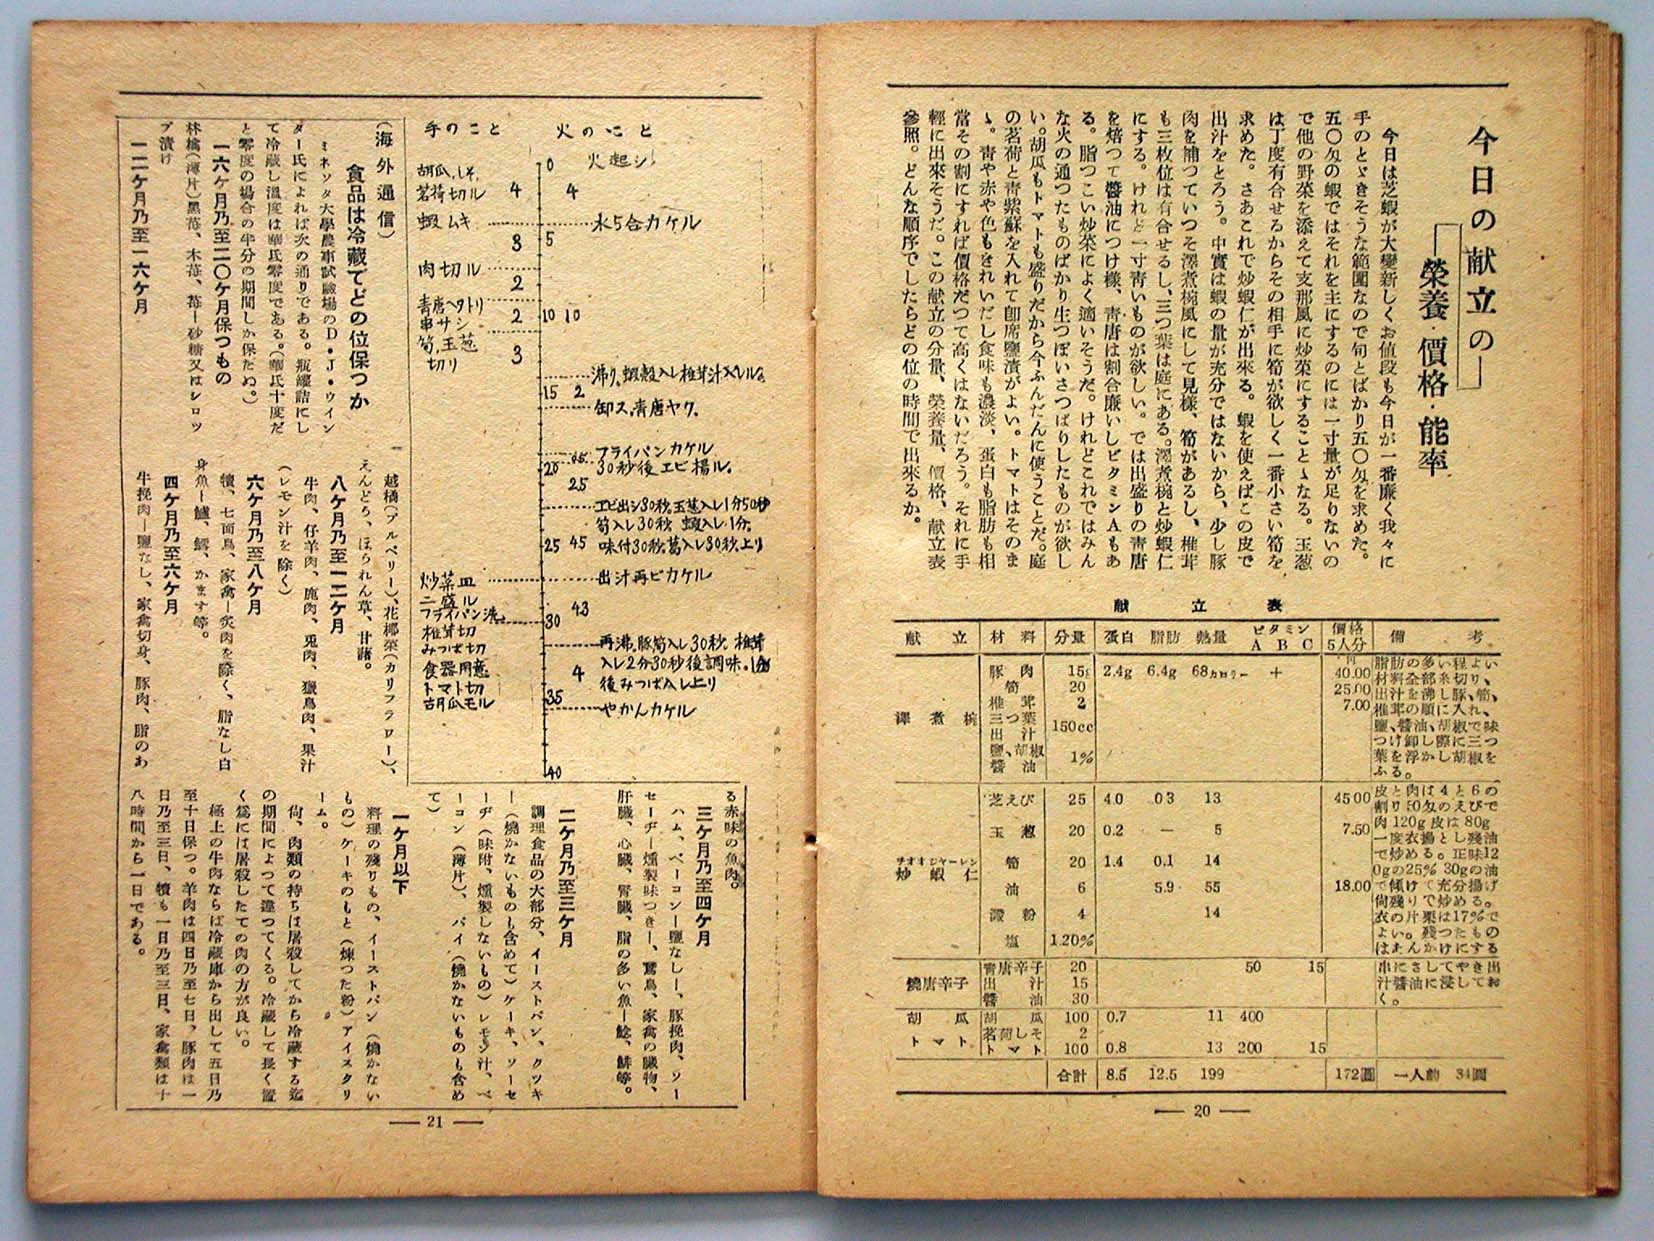 今日の献立の
榮養・價格・能率
今日は芝蝦が大變新しくお値段も今日が一番廉く我々に
手のとゞきそうな範圍なので旬とばかり五〇匁を求めた。
五〇匁の蝦ではそれを主にするのには一寸量が足りないの
で他の野菜を添えて支那風に炒菜にすることゝなる。玉葱
は丁度有合せるからその相手に筍が欲しく一番小さい筍を
求めた。さあこれで炒蝦仁が出來る。蝦を使えばこの皮で
出汁をとろう。中實は蝦の量が充分ではないから、少し豚
肉を補つていつそ澤煮椀風にして見樣、筍があるし、椎茸
も三枚位は有合せるし、三つ葉は庭にある。澤煮椀と炒蝦仁
にする。けれど一寸靑いものが欲しい。では出盛りの靑唐
を焙つて醬油につけ樣、靑唐は割合廉いしビタミンAもあ
る。脂つこい炒菜によく適いそうだ。けれどこれではみん
な火の通つたものばかり生つぽいさつぱりしたものが欲し
い。胡瓜もトマトも盛りだから今ふんだんに使うことだ。庭
の茗荷と靑紫蘇を入れて卽席鹽漬がよい。トマトはそのま
ゝ。靑や赤や色もきれいだし食味も濃淡、蛋白も脂肪も相
當その割にすれば價格だつて高くはないだろう。それに手
輕に出來そうだ。この献立の分量、榮養量、價格、献立表
參照。どんな順序でしたらどの位の時間で出來るか。
献立表
献立 材料 分量 蛋白 脂肪 熱量 ビタミン A B C 價格 5人分 備考
澤煮椀
豚肉 15g 2.4g 6.4g 68カロリー − + 40.00
筍 20 25.00
椎茸 2 7.00
三つ葉
出汁 150cc
鹽、胡椒 1%
醬油
脂肪の多い程よい
材料全部糸切り、
出汁を沸し豚、筍、
椎茸の順に入れ、
鹽、醬油、胡椒で味
つけ卸し際に三つ
葉を浮かし胡椒を
ふる。
チオオシヤーレン
炒蝦仁
芝えび 25 4.0 03 13 4500
玉葱 20 0.2 — 5 7.50
筍 20 1.4 0.1 14
油 6 5.9 55 18.00
澱粉 4 14
塩 1.20%
皮と肉は4と6の
割り50匁のえびで
肉120g皮は80g
一度衣揚とし殘油
で炒める。正味12
0gの25% 30gの油
で傾けて充分揚げ
尙殘りで炒める。
衣の片栗は17%で
よい。殘つたもの
はあんかけにする
燒唐辛子
靑唐辛子 20 50 15
出汁 15
醬油 30
串にさしてやき出
汁醬油に浸してお
く。
胡瓜
胡瓜 100 0.7 11 400
茗荷しそ 2
トマト
トマト 100 0.8 13 200 15
合計 8.5 12.5 199 172圓 一人前 34圓
— 20 —
手のこと
火のこと
火起シ
0
胡瓜、しそ、
茗荷切ル 4 4
蝦ムキ
水5合カケル
3 5
肉切ル
2
靑唐ヘタトリ
串サシ 2 10 10
筍、玉葱
切リ 3
沸り、蝦殼入レ椎茸汁入レル。
15 2
卸ス、靑唐ヤク。
フライパンカケル
20 0.5 30秒後エビ揚ル。
2.5
エビ出シ30秒、玉葱入レ1分50秒
筍入レ30秒、蝦入レ1分、
25 4.5 味付30秒、葛入レ30秒、上リ
炒菜皿
ニ盛ル
出汁再ビカケル
フライパン洗
4.3
30
椎茸切
みつば切
再沸、豚筍入レ30秒、椎茸
食器用意
入レ2分30秒後調味、1分
4
トマト切
後みつば入レ上リ
胡瓜モル
35
やかんカケル
40
(海外通信)
食品は冷藏でどの位保つか
ミネソタ大學農事試驗場のD・J・ウイン
ター氏によれば次の通りである。瓶罐詰にし
て冷藏し溫度は華氏零度である。(華氏十度だ
と零度の場合の半分の期間しか保たぬ。)
一六ケ月乃至二〇ケ月保つもの
林檎(薄片)黑苺、木苺、苺—砂糖又はシロツ
プ漬け
一二ケ月乃至一六ケ月
越橘(ブルベリー)、花椰菜(カリフラワー)、
えんどう、ほうれん草、甘藷。
八ケ月乃至一二ケ月
牛肉、仔羊肉、鹿肉、兎肉、獵鳥肉、果汁
(レモン汁を除く)
六ケ月乃至八ケ月
犢、七面鳥、家禽—炙肉を除く、脂なし白
身魚—鱸、鱈、かます等。
四ケ月乃至六ケ月
牛挽肉—鹽なし、家禽切身、豚肉、脂のあ
る赤味の魚肉。
三ケ月乃至四ケ月
ハム、ベーコン—鹽なし—、豚挽肉、ソー
セーヂ—燻製味つき—、鵞鳥、家禽の臟物、
肝臟、心臟、腎臟、脂の多い魚—鯰、鯡等。
二ケ月乃至三ケ月
調理食品の大部分、イーストパン、クツキ
ー(燒かないものも含めて)ケーキ、ソーセ
ーヂ(味附、燻製しないもの)レモン汁、ベ
ーコン(薄片)、パイ(燒かないものも含め
て)
一ケ月以下
料理の殘りもの、イーストパン(燒かない
もの)ケーキのもと(煉つた粉)アイスクリ
ーム。
尙、肉類の持ちは屠殺してから冷藏する迄
の期間によつて違つてくる。冷藏して長く置
く爲には屠殺したての肉の方が良い。
極上の牛肉ならば冷藏庫から出して五日乃
至十日保つ。羊肉は四日乃至七日、豚肉は一
日乃至三日、犢も一日乃至三日、家禽類は十
八時間から一日である。
— 21 —